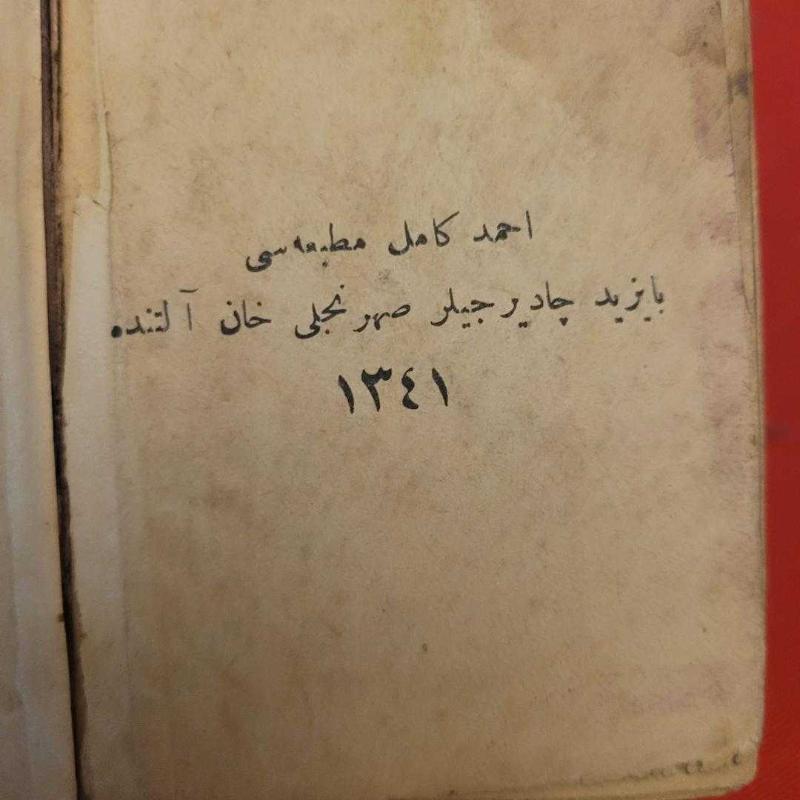 احمد كامل مطبعه‌سی
بايزيد چاديرجيلر صهرنجلی خان آلتنده
١٣٤١